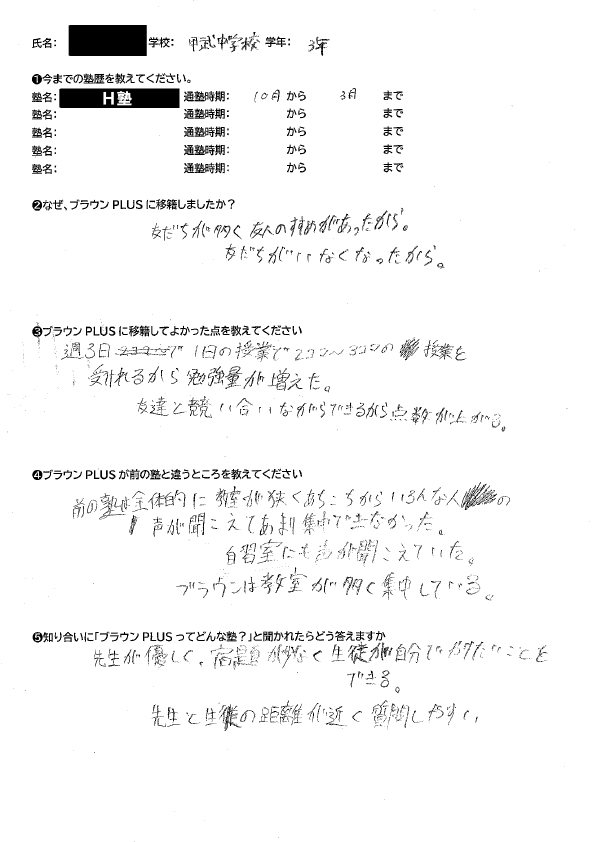 氏名： 学校： 甲武中学校 学年： 3年
❶今までの塾歴を教えてください。
塾名： H塾 通塾時期： 10月 から 3月 まで
塾名： 通塾時期： から まで
塾名： 通塾時期： から まで
塾名： 通塾時期： から まで
塾名： 通塾時期： から まで
❷なぜ、ブラウン PLUS に移籍しましたか？
友だちが多く 友人のすすめがあったから。
友だちがいなくなったから。
❸ブラウン PLUS に移籍してよかった点を教えてください
週3日 で 1日の授業で2コマ〜3コマの 授業を
受けれるから 勉強量が増えた。
友達と競い合いながらできるから点数が上がる。
❹ブラウン PLUS が前の塾と違うところを教えてください
前の塾は全体的に 教室が狭くあちこちからいろんな人の
声が聞こえてあまり集中できなかった。
自習室にも声が聞こえていた。
ブラウンは教室が多く集中している。
❺知り合いに「ブラウン PLUS ってどんな塾？」と聞かれたらどう答えますか
先生が優しく、宿題が少なく 生徒が自分でやりたいことを
できる。
先生と生徒の距離が近く 質問しやすい